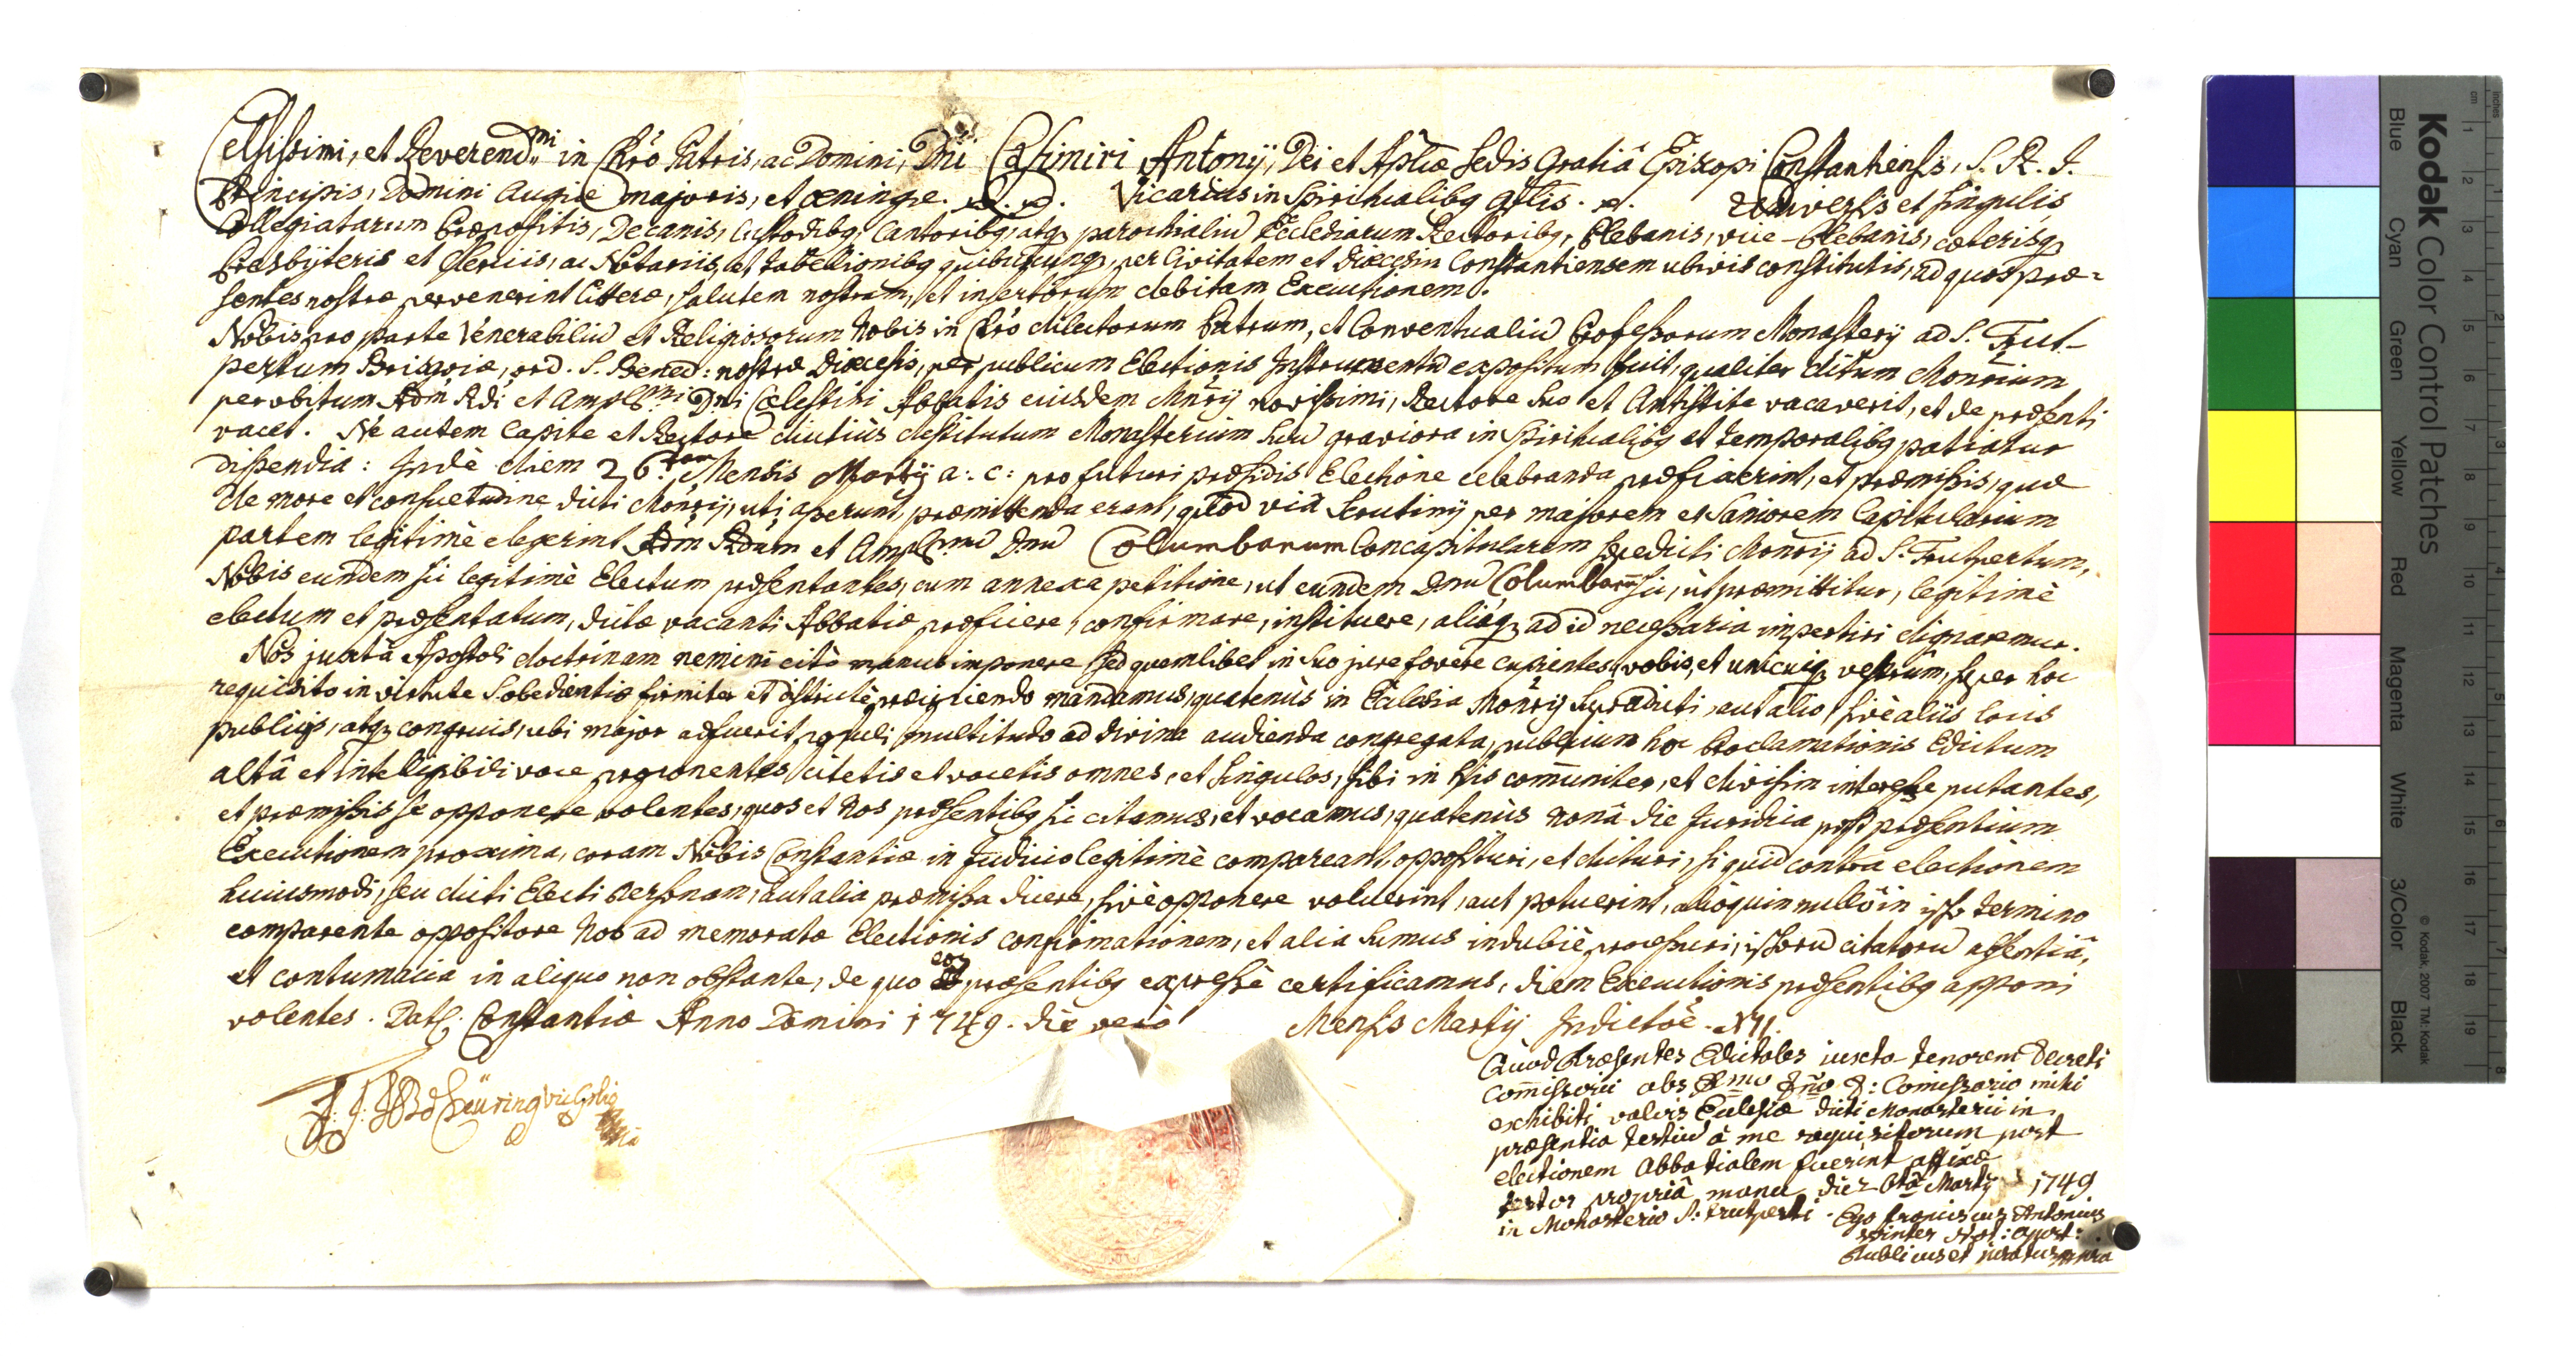 Celsissimi, et Reverend.mi in Chro Patris, ac Domini, Dni Casimiri Antonij, Dei et Aplicæ Sedis Gratiâ Episcopi Constantiensis, S. R. I.
Principis, Domini Augiæ majoris, et Oeningæ. Vicarius in Spiritualibq gnlis. Universis et singulis
Collegiatarum Præpositis, Decanis, Custodibq, Cantoribq, atq parochialiū Ecclesiarum Rectoribq, Plebanis, vice-Plebanis, cæterisq
Presbyteris et Clericis, ac Notariis, et tabellionibq quibuscunq, per Civitatem et Diœcesin Constantiensem ubivis constitutis, ad quos præ=
sentes nostræ pervenerint litteræ, salutem nostram, et insertorum debitam Executionem.
Nobis pro parte Venerabiliū et Religiosorum Nobis in Chro dilectorum Patrum, et Conventualiū Professorum Monasterij ad S. Trut-
pertum Brisgoiæ, ord. S. Bened: nostræ Diœcesis, per publicum Electionis Instrumentū expositum fuit, qualiter dictum Monrium
per obitum Adm Rdi et Ampl.mi Dni Cælestini Abbatis eiusdem Mnrij novissimi, Rectore suo et Antistite vacaverit, et de præsenti
vacet. Ne autem Capite et Rectore diutiùs destitutum Monasterium suū graviora in Spiritualibq et temporalibq patiatur
dispendia: Indè diem 26.tam Mensis Martij a: c: pro futuri præsidis Electione celebranda præfixerint, et præmissis, quæ
de more et consuetudine dicti Monrij, uti asserunt, præmittenda erant, quòd viâ Scrutinij per majorem et saniorem Capitularium
partem legitimè elegerint Adm Rdum et Ampl.mū Dnū Columbanum Concapitularem sædicti Monrij ad S. Trutpertum,
Nobis eundem sic legitimè Electum præsentantes, cum annexa petitione, ut eundem Dnū Columbanū sic, ut præmittitur, legitimè
electum et præsentatum, dictæ vacanti Abbatiæ præficere, confirmare, instituere, aliaq ad id necessaria impertiri dignaremur.
Nos juxta Apostoli doctrinam nemini citò manus imponere, sed quemlibet in suo jure fovere cupientes, vobis, et unicuiq vestrûm, super hoc
requisito in virtute S. obedientiæ firmiter et districtè præcipiendo mandamus, quatenùs in Ecclesia Monrij supradicti, aut alio sivè aliis locis
publicis, atq congruis, ubi major adfuerit populi multitudo ad divina audienda congregata, publicum hoc Proclamationis Edictum
altâ et intelligibili voce proponentes, citetis et vocetis omnes, et singulos, sibi in his com̄uniter, et divisim interesse putantes,
et præmissis se opponere volentes, quos et Nos præsentibq sic citamus, et vocamus, quatenùs nonâ die Juridica post præsentium
Executionem proxima, coram Nobis Constantiæ in Judicio legitimè compareant, opposituri, et dicturi, si quid contra electionem
huiusmodi, seu dicti Electi personam, aut alia præmissa dicere, sivè opponere voluerint, aut potuerint, alioquin nullo in ipso termino
comparente oppositore Nos ad memoratæ Electionis confirmationem, et alia sumus indubiè processuri, ipsorū citatorū absentiâ,
et contumacia in aliquo non obstante, de quo eos præsentibq expressè certificamus, diem Executionis præsentibq apponi
volentes. Dat. Constantiæ Anno Domini 1749. die verò Mensis Martij Indictoē. XII.
Quod Præsentes Edictales iuxta tenorem decreti
Com̄issorii abs Rmo Dño D: Comissario mihi
exhibiti valvis Ecclesiæ dicti Monasterii in
præsentia testiū à me requisitorum post
electionem Abbatialem fuerint affixæ
testor propriâ manu die 26ta Martij 1749
in Monasterio S: Trutperti. Ego Franciscus Antonius
Not: apost:
Publicus et juratus mpria